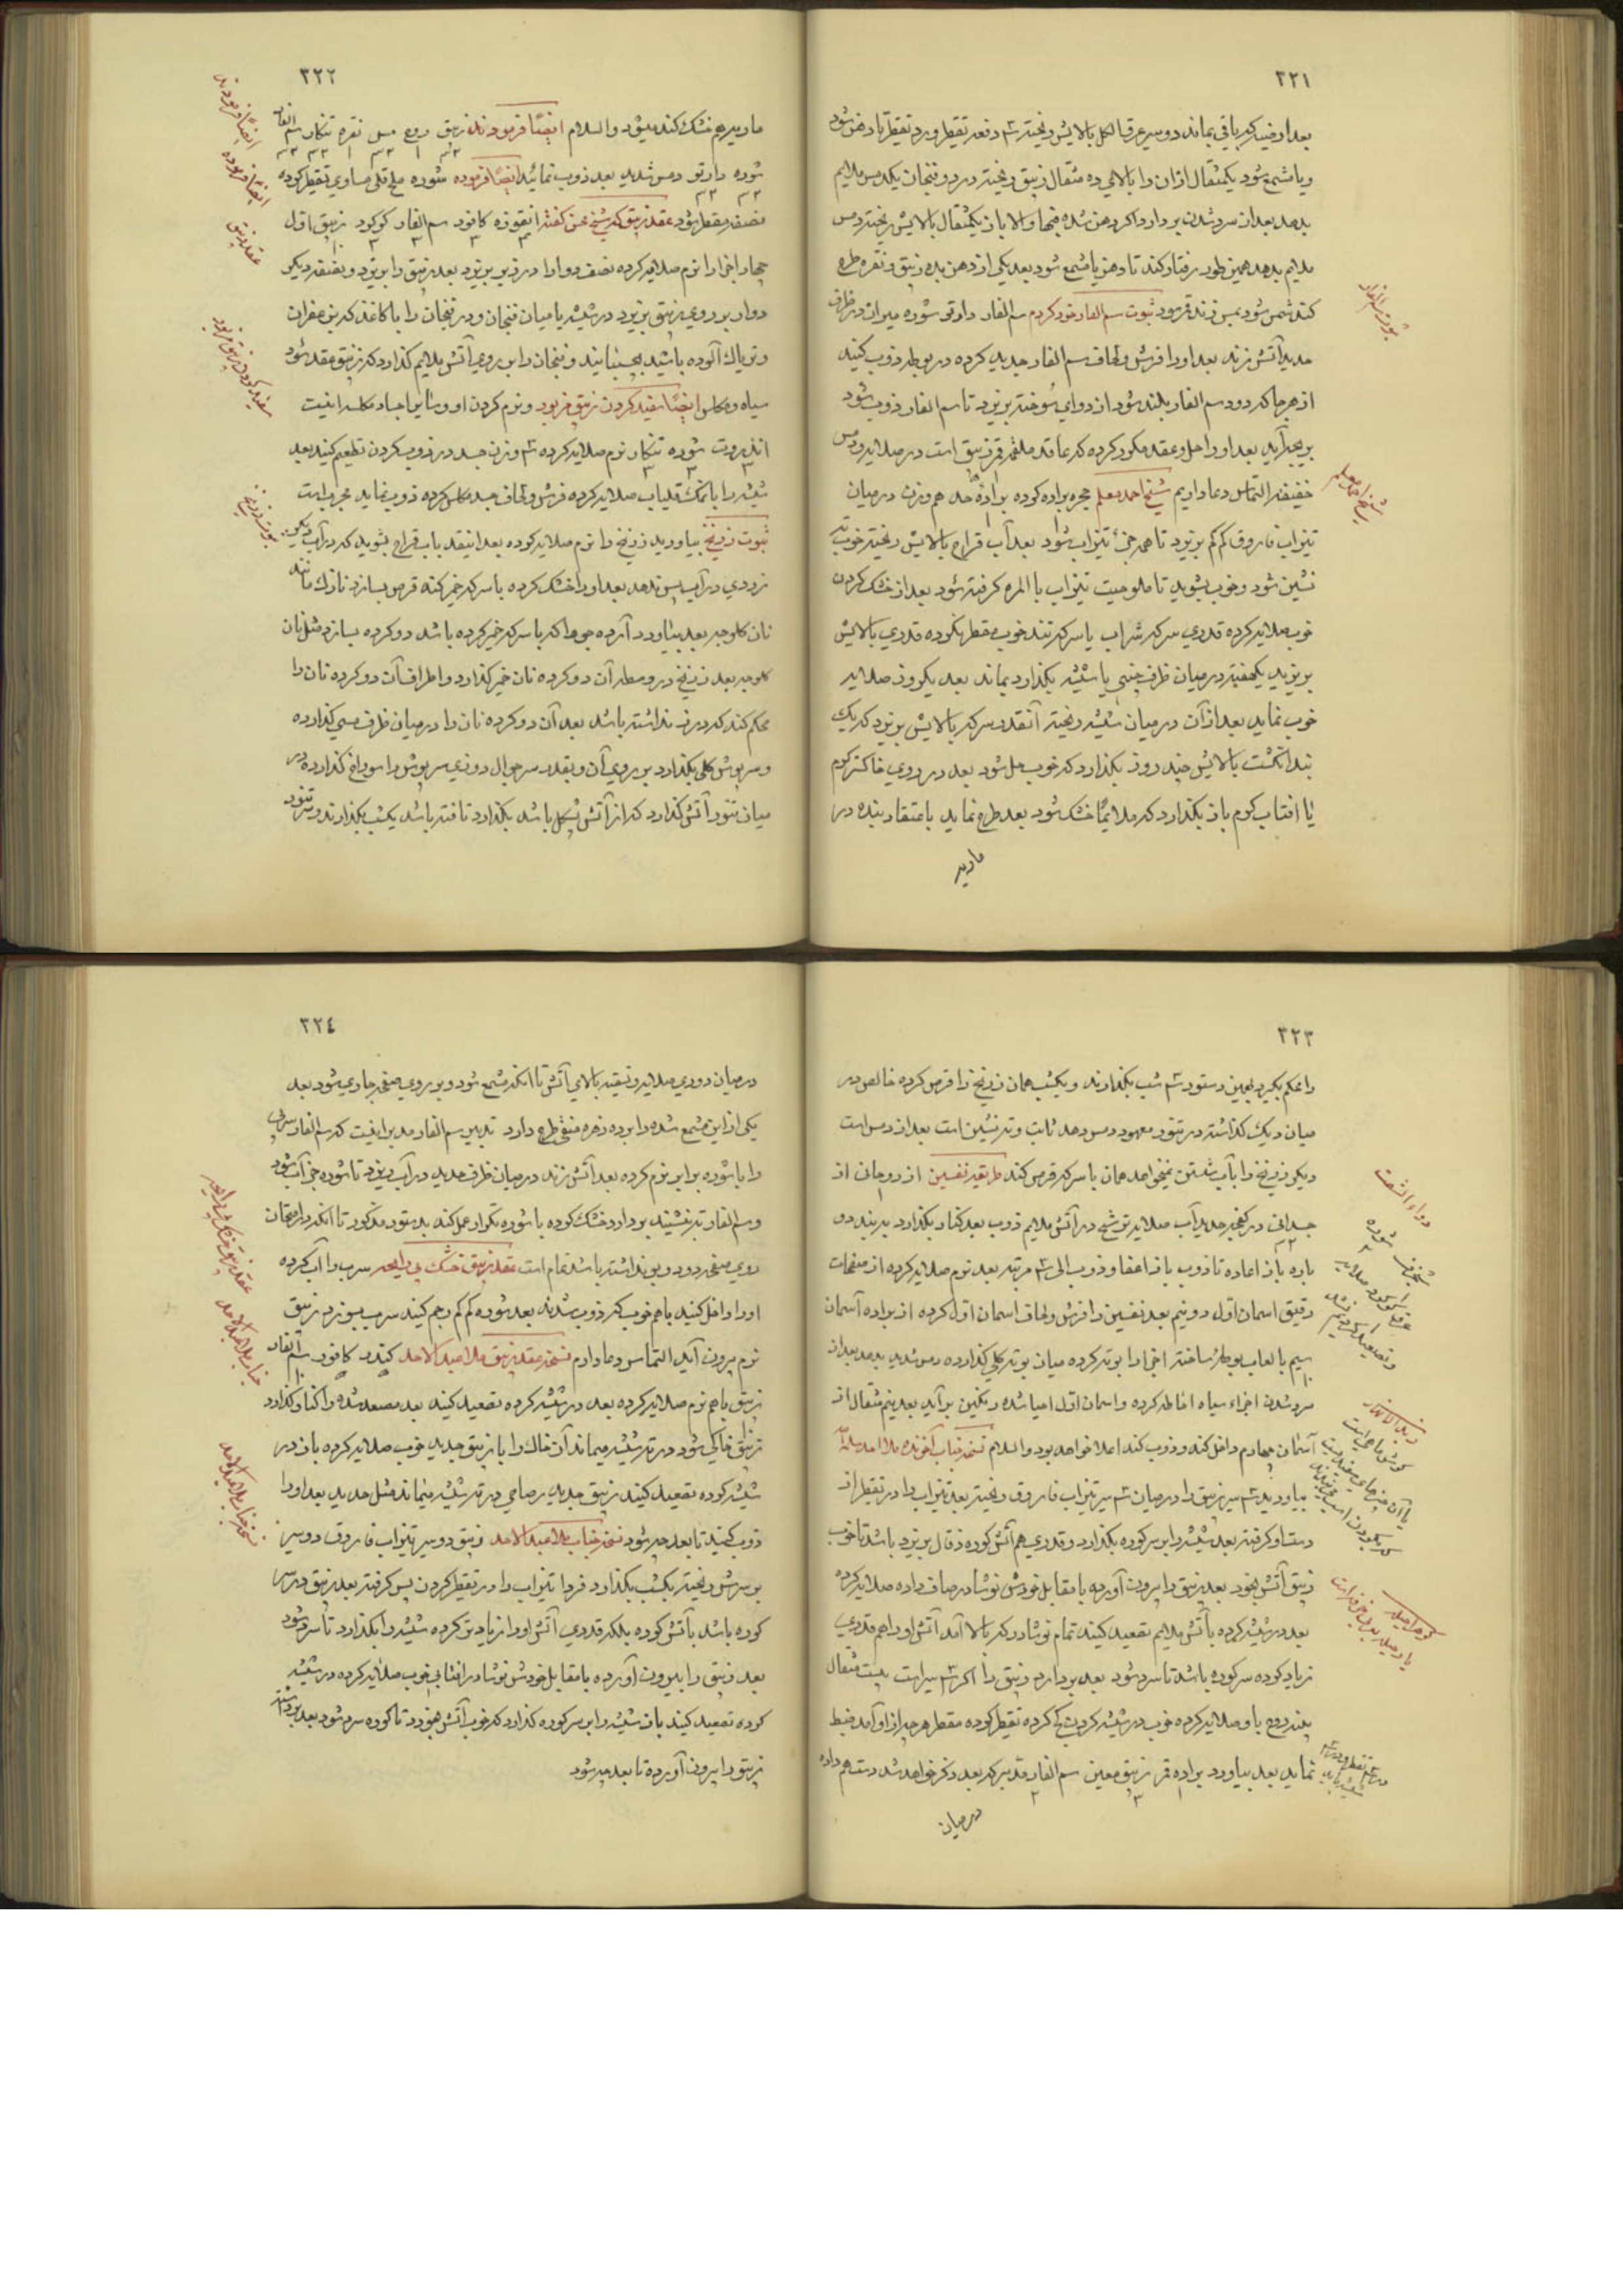 ٣٢١
بعد او ضد که باقی بماند دو سیر عرق الکل بالایش ریخته ٣ دفعه تقطیر و رد تقطیر تا دهن شود
و یا مشمع شود یکمثقال از ان را بالای ده مثقال زیبق ریخته در دو فنجان یکدمس ملایم
بدهد بعد از سرد شدن بردارد اگر دهن شده فبها والا باز یکمثقال بالایش ریخته دمس
ملایم بدهد همین طور رفتار کند تا دهن یا مشمع شود بعد یکی از دهن بده زیبق و نقره طرح
کند شمس شود بمس زند قمر شود ثبوت سم الفار خود کردم سم الفار داوتو شوره میزان در ظرف
حدید آتش زند بعد او را فرش و لحاف سم الفار جدید کرده در بوطه ذوب کنید
از هر جا که دود سم الفار بلند شود از دوای سوخته بریزد تا سم الفار ذوب شود
بریجه آید بعد او را حل و عقد مکرر کرده که عاقد ملغمه قمر زیبق است در صلایه و دمس
خفیفه التماس دعا داریم شیخ احمد معلم حجر براده کرده براده حدید هم وزن در میان
تیزاب فاروق کم کم بریزد تا همه جزء تیزاب شود بعد آب قراح بالایش ریخته خوب ته
نشین شود و خوب بشوید تا ملوحیت تیزاب بالمره گرفته شود بعد از خشک کردن
خوب صلایه کرده قدری سرکه شراب یا سرکه تند خوب مقطر نکرده قدری بالایش
بریزید یکهفته در میان ظرف چینی یا شیشه بگذارد بماند بعد یکروز صلایه
خوب نماید بعد از آن در میان شیشه ریخته آنقدر سرکه بالایش بریزد که یک
بند انگشت بالایش چند روز بگذارد که خوب حل شود بعد در روی خاکستر گرم
یا افتاب گرم باز بگذارد که ملایمًا خشک شود بعد طرح نماید باعتقاد بنده در
مادیه
ثبوت سم الفار
شیخ احمد معلم
٣٢٢
مادیه هم خشک کند میشود والسلام ایضًا فرمودند زیبق روح مس نقره تنکار سم الفار
شوره داوتو دمس شدید بعد ذوب نمائید ایضًا فرموده شوره ملح قلی مساوی تقطیر کرده
نصفه مقطر شود عقد زیبق که شیخ حسن گفته انقوزه کافور سم الفار کوکرد زیبق اول
چهار اجزا را نرم صلایه کرده نصف دوا را در زیر بریزد بعد زیبق را بریزد و نصفه دیگر
دوا را بر روی زیبق بریزد در شیشه یا میان فنجان و در فنجان را با کاغذ که بزعفران
و تریاک آلوده باشید بچسبانید و فنجان را بر روی آتش ملایم گذارد که زیبق عقد شود
سیاه و مکلس ایضًا سفید کردن زیبق مزبور و نرم کردن او و سایر اجساد مکلسه اینست
انزروت شوره تنکار نرم صلایه کرده ٣ وزن جسد در ذوب کردن تطعیم کنید بعد
شیشه را با نمک قلیاب صلایه کرده فرش و لحاف جسد مکلس کرده ذوب نماید مجرب است
ثبوت زرنیخ بیاورید زرنیخ را نرم صلایه کرده بعد اینقدر باب قراح بشوید که در آب دیگر
زردی در آب پس ندهد بعد او را خشک کرده با سرکه خمیر کند قرص بسازد نازک مانند
نان کلوچه بعد بیاورد آرد جو را که با سرکه خمیر کرده باشد دو کرده بسازد مثل نان
کلوچه بعد زرنیخ در وسط آن دو کرده نان خمیر گذارد و اطراف آن دو کرده نان را
محکم کند که درز نداشته باشد بعد آن دو کرده نان را در میان ظرف مسی گذارده
و سرپوش گلی بگذارد بر روی آن و بقدر سر جوال دوزی سرپوش را سوراخ گذارده در
میان تنور آتش گذارد که از آتش پشکل باشد بگذارد تافته باشد یکشب بگذارند در تنور
ایضًا فرمودند
ایضًا فرموده
عقد زیبق
سفید کردن زیبق مزبور
ثبوت زرنیخ
٣٢٣
را محکم بگیرد بهمین دستور ٣ شب بگذارند و یکشب همان زرنیخ را قرص کرده خالص در
میان دیگ گذاشته در تنور معهود دمس دهد ثابت و ته نشین است بعد از دمس است
دیگر زرنیخ را بآب شستن نمیخواهد همان با سرکه قرص کند طریقه نفسین از روحانی از
جسدانی در کفچه حدید آب صلایه ترشح در آتش ملایم ذوب بعد کنار بگذارد به بندد
باره باز اعاده تا ذوب باز اعقا و ذوب الی ٣ مرتبه بعد نرم صلایه کرده از صفحات
رقیق اسمان اول دو نیم بعد نفسین را فرش و لحاف اسمان اول کرده از براده آسمان
سیم بالعاب بوطه ساخته اجزا را بوته کرده میان بوته گلی گذارده دمس شدید بدهد بعد از
سرد شدن اجزاء سیاه احاطه کرده و اسمان اول احیا شده رنگین برآید بعد نیم مثقال از
آسمان چهارم داخل کند و ذوب کند اعلا خواهد بود والسلام نسخه جناب آخوند ملا احمد سلمه الله
بیاورید ٣ سیر زیبق را در میان ٣ سیر تیزاب فاروق ریخته بعد تیزاب را در تقطیر از
دست او گرفته بعد شیشه را بر سر کوره بگذارد و قدری هم آتش کوره ذغال بریزد باشد تا خوب
زیبق آتش بخورد بعد زیبق را بیرون آورده با مقابل خودش نوشادر صاف داده صلایه کرده
بعد در شیشه کرده بآتش ملایم تصعید کنید تمام نوشادر که بالا آمد آتش او را هم قدری
زیاد کرده سر کوره باشد تا سرد شود بعد بردارد زیبق را اگر ٣ سیر است بیست مثقال
پند روح با و صلایه کرده خوب در شیشه کردن کج کرده تقطیر کرده مقطر هر چه از او آمد ضبط
نماید بعد بیاورد براده قمر زیبق معین سم الفار مدبر که بعد ذکر خواهد شد دست هم داده
درمیان
دواء الشعث
شنجرف شوره
٣٢٤
در میان دوری صلایه و تسقیه بالای آتش تا آنکه مشمع شود و بر روی صفحه جاری شود بعد
یکی از این مشمع شده را بر ده زهره منقی طرح دارد تدبیر سم الفار مدبر اینست که سم الفار سرخ
را با شوره برابر نرم کرده بعد آتش زند در میان ظرف حدید در آب بریزد تا شوره جزء آب شود
و سم الفار ته نشیند بردارد خشک کرده با شوره تکرار عمل کند بدستور مذکور تا آنکه در امتحان
روی صفحه دود و بو نداشته باشد تمام است عقد زیبق خشک بی رایحه سرب را آب کرده
او را داخل کنید باهم خوب که ذوب شدند بعد شوره کم کم رجم کنید سرب بسوزد زیبق
نرم بیرون آید التماس دعا دارم نسخه عقد زیبق ملا عبد الاحد کندر کافور سم الفار
زیبق باهم نرم صلایه کرده بعد در شیشه کرده تصعید کنید بعد مصعد شده را کنار گذارد
زیبق خاکی شود در ته شیشه میماند آن خاک را با زیبق جدید خوب صلایه کرده باز در
شیشه کرده تصعید کنید زیبق جدید رصاصی در ته شیشه میماند مثل حدید بعد او را
ذوب کنید تا بعد چه شود نسخه جناب ملا عبد الاحد زیبق دو سیر تیزاب فاروق دو سیر
بر سرش ریخته یکشب بگذارد فردا تیزاب را در تقطیر کردن پس گرفته بعد زیبق در سر
کوره باشد بآتش کوره بلکه قدری آتش او را زیادتر کرده شیشه را بگذارد تا سرد شود
بعد زیبق را بیرون آورده با مقابل خودش نوشادر افتابی خوب صلایه کرده در شیشه
کرده تصعید کنید باز شیشه را بر سر کوره گذارد که خوب آتش بخورد تا کوره سرد شود بعد
زیبق را بیرون آورده تا بعد چه شود
عقد زیبق خشک بی رایحه
جناب ملا عبد الاحد
نسخه جناب ملا عبد الاحد